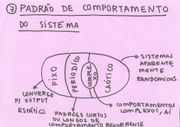 ⑦ PADRÃO DE COMPORTAMENTO
DO SISTEMA
FIXO
PERIÓDICO
COMPLE
XO
CAÓTICO
SISTEMAS
APARENTE
MENTE
RANDOMICOS
CONVERGE
P/ OUTPUT
ESTÁTICO
PADRÕES CURTOS
OU LONGOS DE
COMPORTAMENTO RECORRENTE
COMPORTAMENTOS
COMPLEXOS, AI